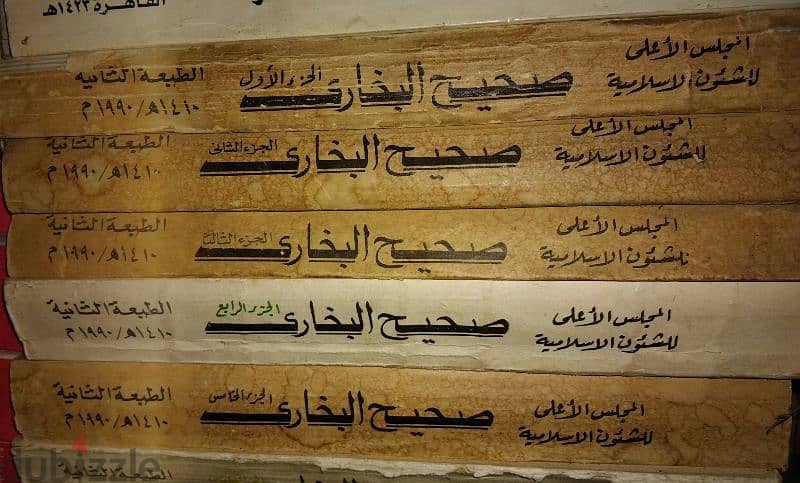 القاهرة ١٤٢٣هـ
المجلس الأعلى
للشئون الاسلامية
صحيح البخارى
الجزء الأول
الطبعة الثانيه
١٤١٠هـ/١٩٩٠م
المجلس الأعلى
للشئون الاسلامية
صحيح البخارى
الجزء الثانى
الطبعة الثانية
١٤١٠هـ/١٩٩٠م
المجلس الأعلى
للشئون الاسلامية
صحيح البخارى
الجزء الثالث
الطبعة الثانية
١٤١٠هـ/١٩٩٠م
المجلس الأعلى
للشئون الاسلامية
صحيح البخارى
الجزء الرابع
الطبعة الثانية
١٤١٠هـ/١٩٩٠م
المجلس الأعلى
للشئون الاسلامية
صحيح البخارى
الجزء الخامس
الطبعة الثانية
١٤١٠هـ/١٩٩٠م
الطبعة الثانية
dubizzle